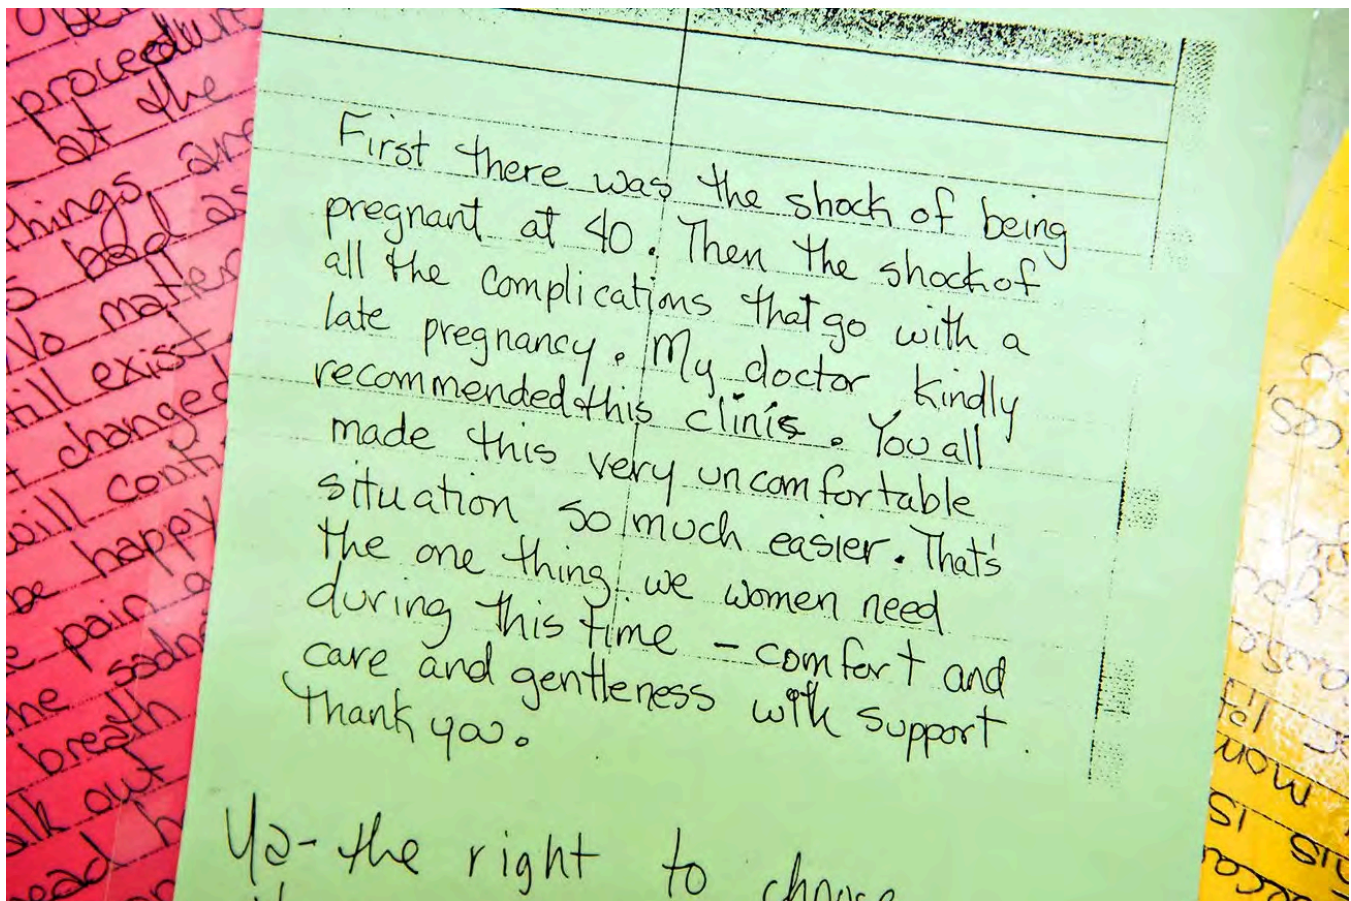 proceedur
at the
things are
bad as
No matter
still exist
changed
will conti
be happy
pain a
the sadn
breath
alk out
ead h
First there was the shock of being
pregnant at 40. Then the shock of
all the complications that go with a
late pregnancy. My doctor kindly
recommended this clinic. You all
made this very uncomfortable
situation so much easier. That's
the one thing we women need
during this time - comfort and
care and gentleness with support.
Thank you.
Ya- the right to choose
mom
is